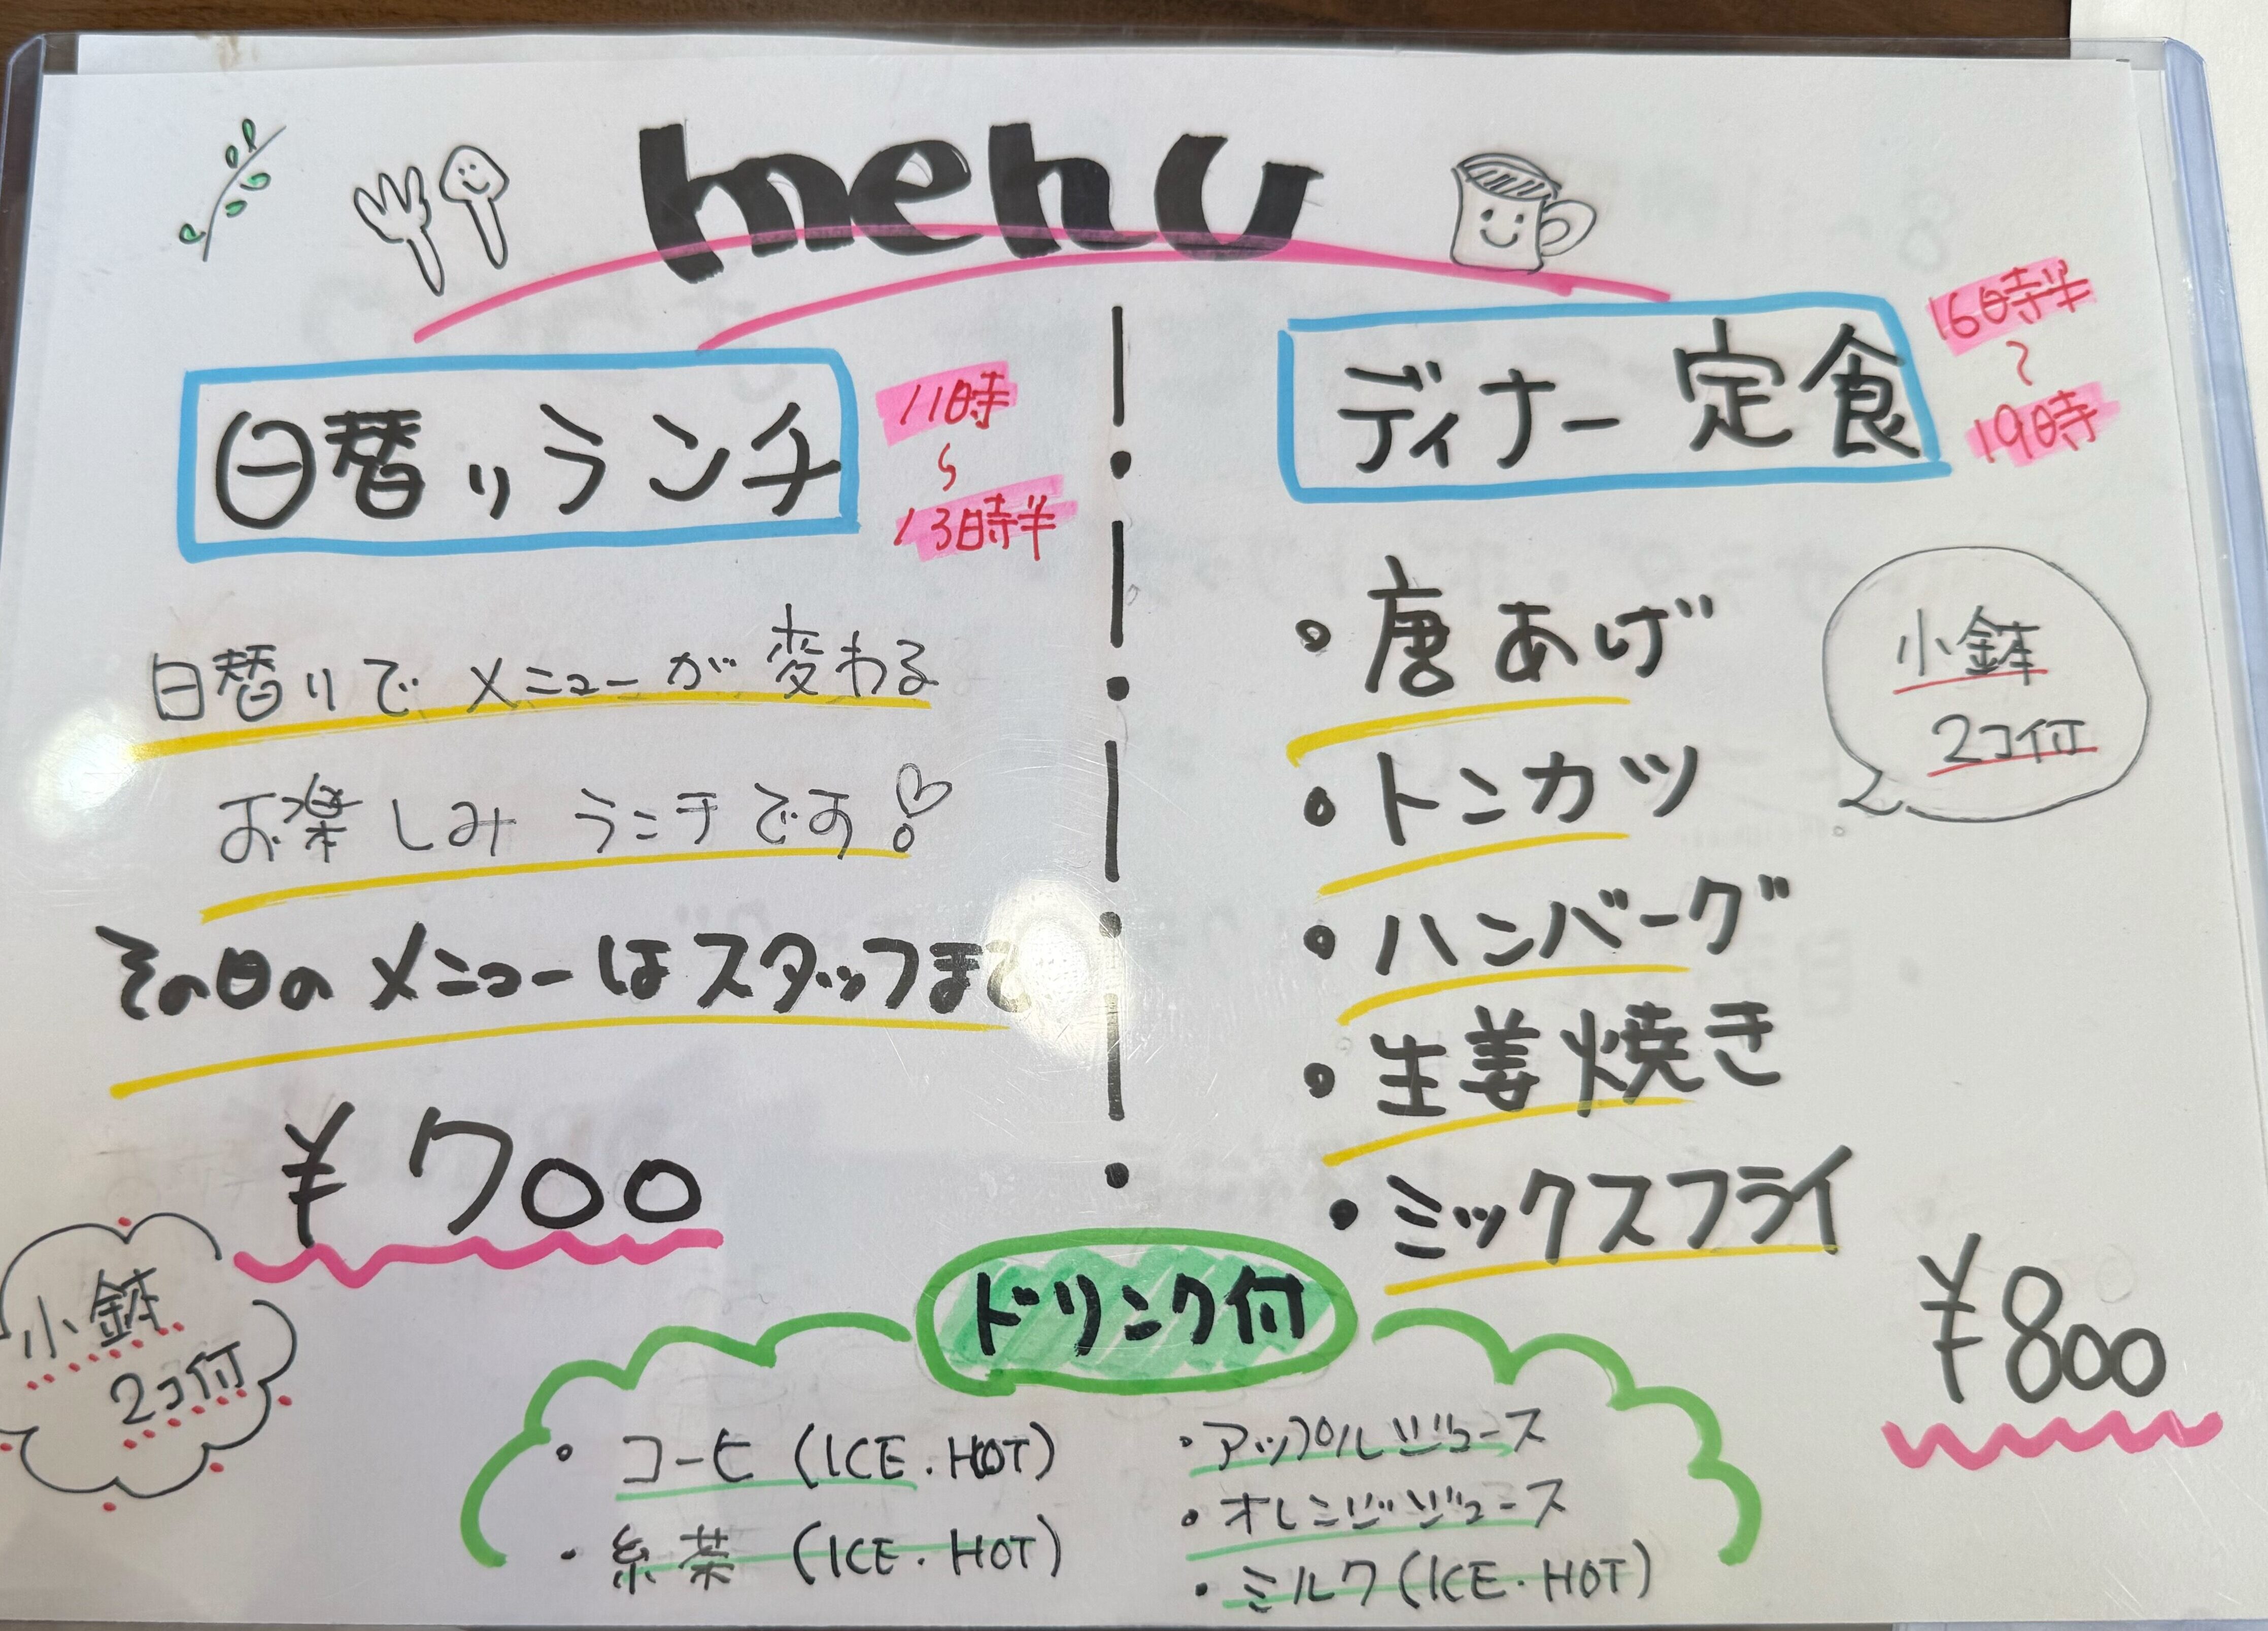 menu
日替りランチ
11時
～
13時半
日替りで メニューが変わる
お楽しみ ランチです!
その日の メニューはスタッフまで
¥700
小鉢
2コ付
ディナー 定食
16時半
～
19時
小鉢
2コ付
・唐あげ
・トンカツ
・ハンバーグ
・生姜焼き
・ミックスフライ
¥800
ドリンク付
・コーヒ (ICE・HOT)
・ (ICE・HOT)
・アップルジュース
・オレンジジュース
・ミルク (ICE・HOT)